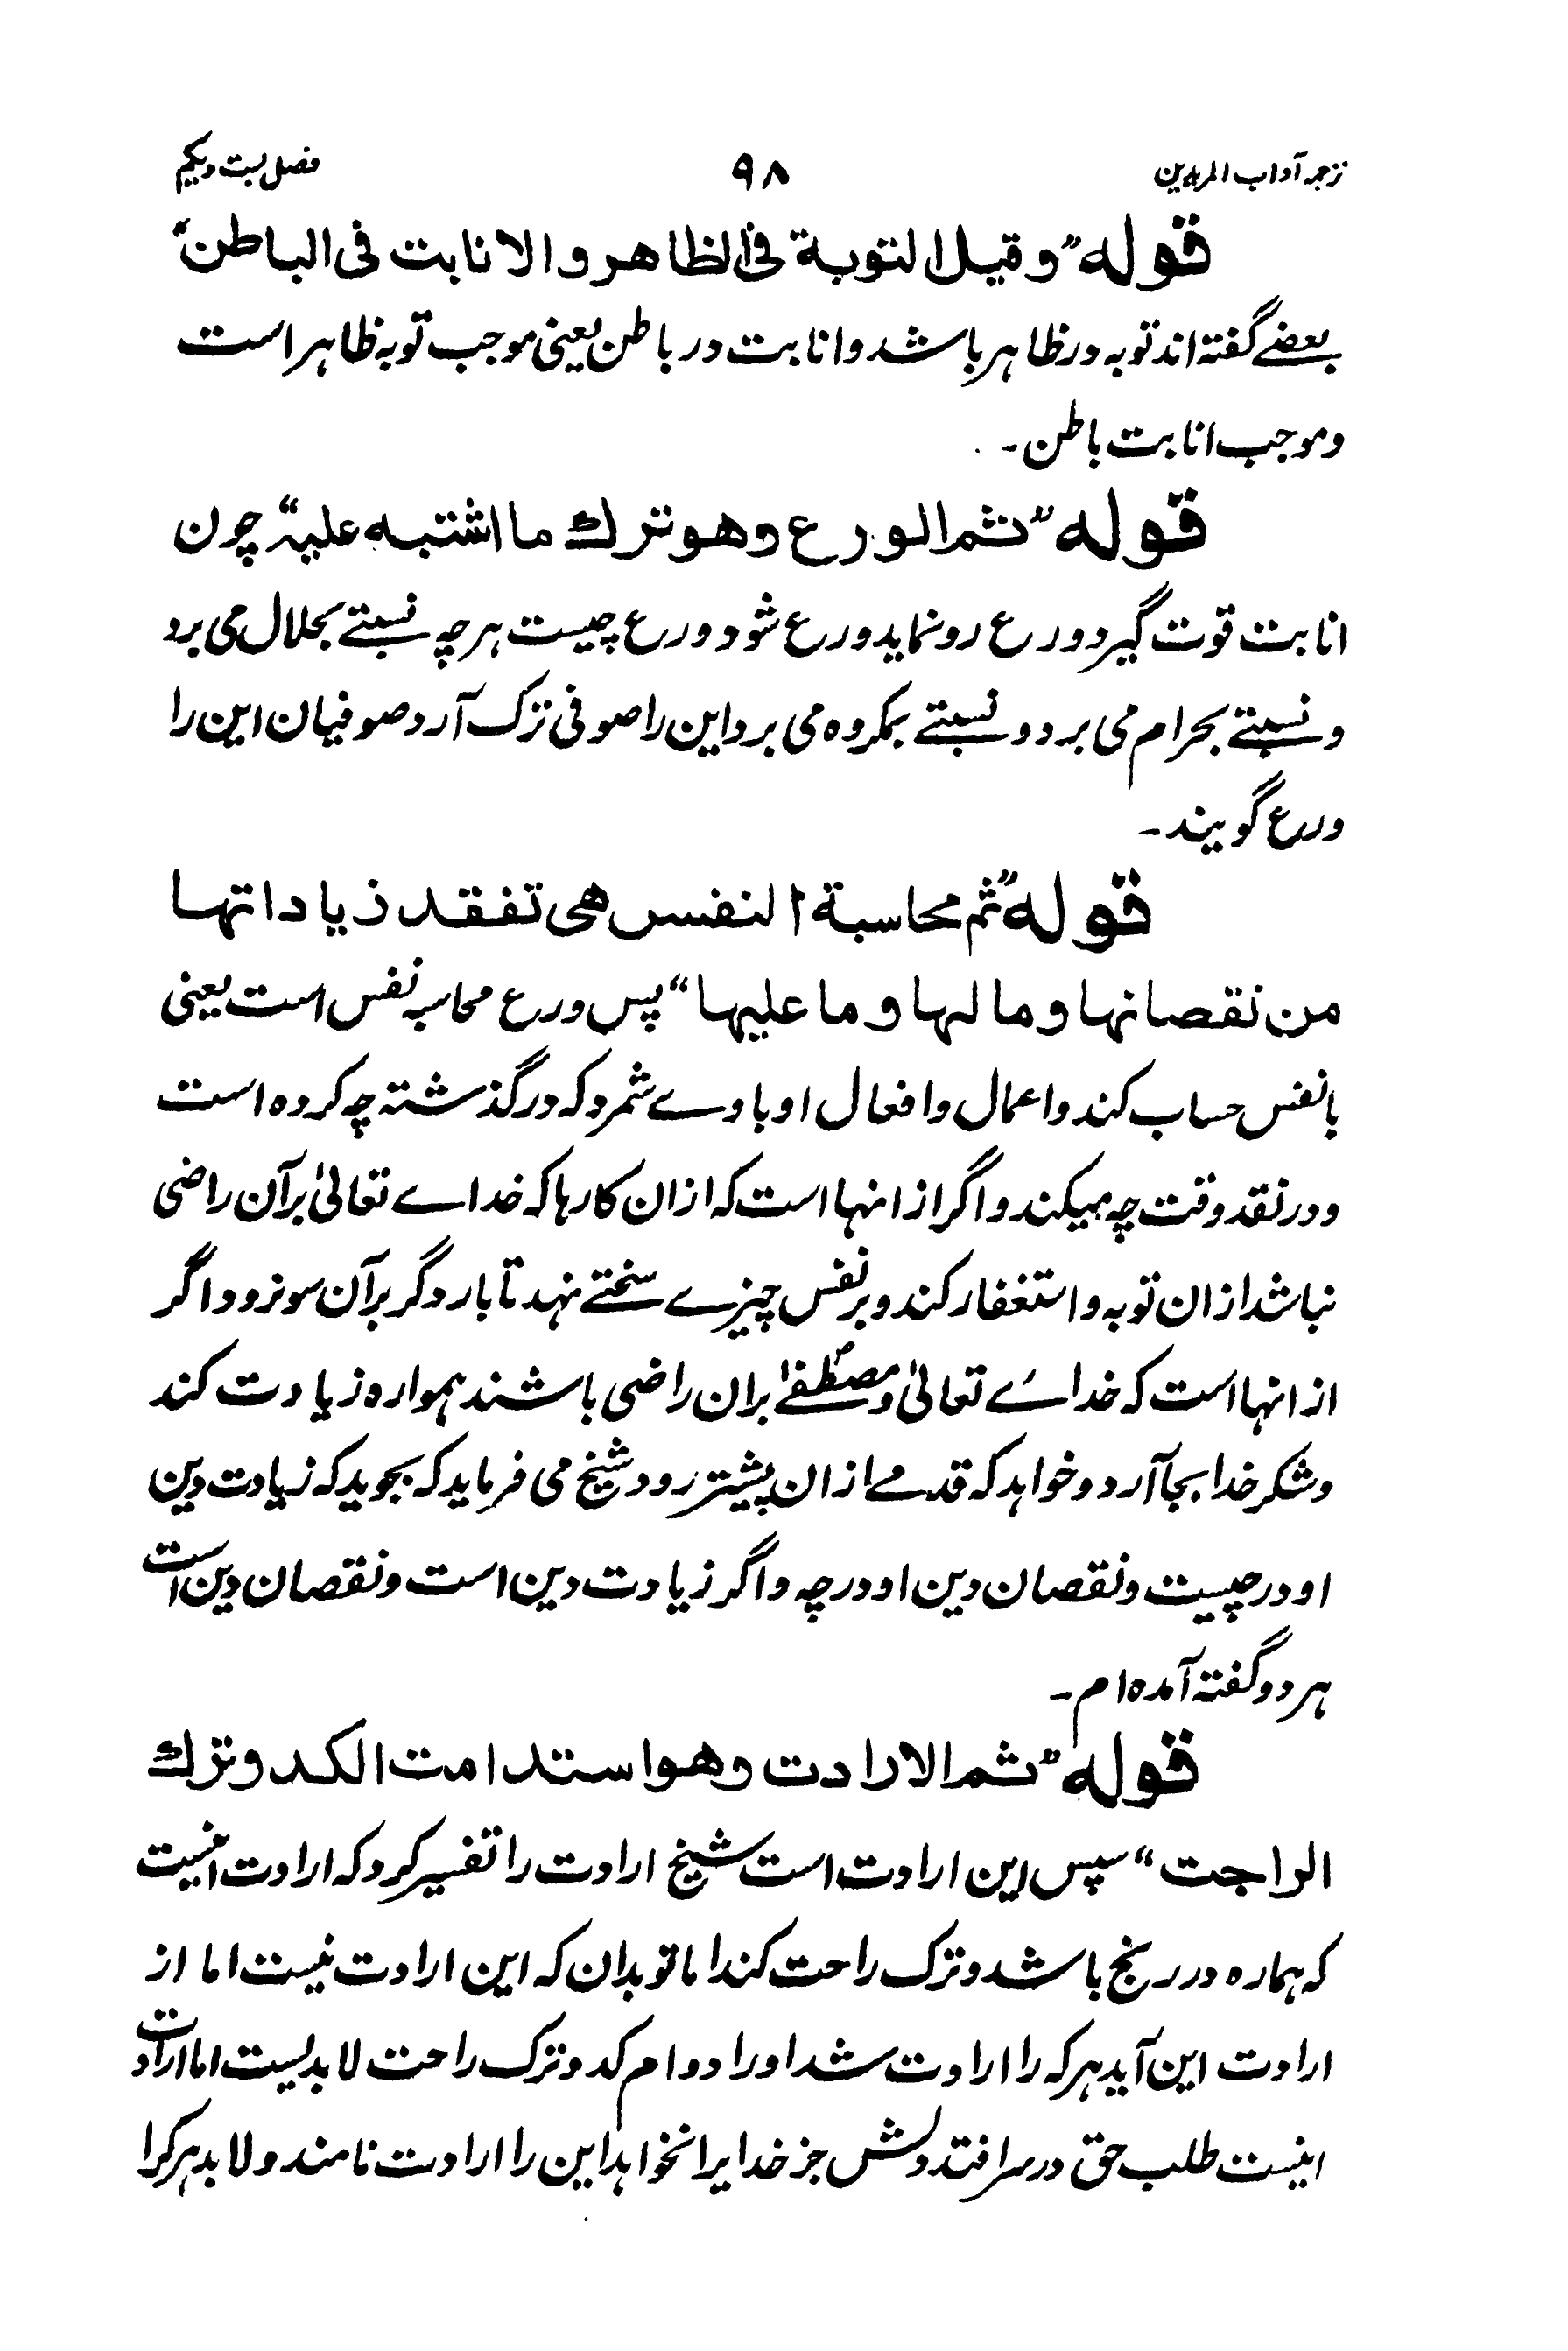 ترجمہ آداب المریدین ۹۸ فصل بست ویکم
قوله "وقیل التوبة فی الظاهر والانابت فی الباطن"
بعضے گفتہ اند توبہ در ظاہر باشد وانابت در باطن یعنی موجب توبہ ظاہر است
وموجب انابت باطن۔
قوله "ثم الورع وهو ترك ما اشتبه علیه" چون
انابت قوت گیرد ورع رو نماید ورع شود ورع چیست ہر چہ نسبتے بحلال می برد
ونسبتے بحرام می برد ونسبتے بمکروہ می برد این را صوفی ترک آرد صوفیان این را
ورع گویند۔
قوله "ثم محاسبة النفس هی تفقد زیاداتها
من نقصانها وما لها وما علیها" پس ورع محاسبہ نفس است یعنی
بانفس حساب کند واعمال وافعال او باوے شمرد کہ در گذشتہ چہ کردہ است
ودر نقد وقت چہ میکند واگر از انہا است کہ ازان کارہا کہ خداے تعالیٰ برآن راضی
نباشد ازان توبہ و استغفار کند وبر نفس چیزے سختے نہد تا بار دگر برآن سو نرود اگر
از انہا است کہ خداے تعالیٰ ومصطفیٰ بران راضی باشند ہموارہ زیادت کند
وشکر خدا بجا آرد وخواہد کہ قدمے ازان پیشتر رود شیخ می فرماید کہ بجوید کہ زیادت دین
او در چیست ونقصان دین او در چہ واگر زیادت دین است ونقصان دین است
ہر دو گفتہ آمدہ ام۔
قوله "ثم الارادت وهو استدامت الكد وترك
الراحت" سپس این ارادت است شیخ ارادت را تفسیر کرد کہ ارادت اینست
کہ ہمارہ در رنج باشد وترک راحت کند اما تو بدان کہ این ارادت نیست اما از
ارادت این آید ہر کہ را ارادت شد اورا دوام کد وترک راحت لابدیست اما ارادت
اینست طلب حق در سر افتد ودلش جز خدایرا نخواہد این را ارادت نامند ولابد ہر کرا